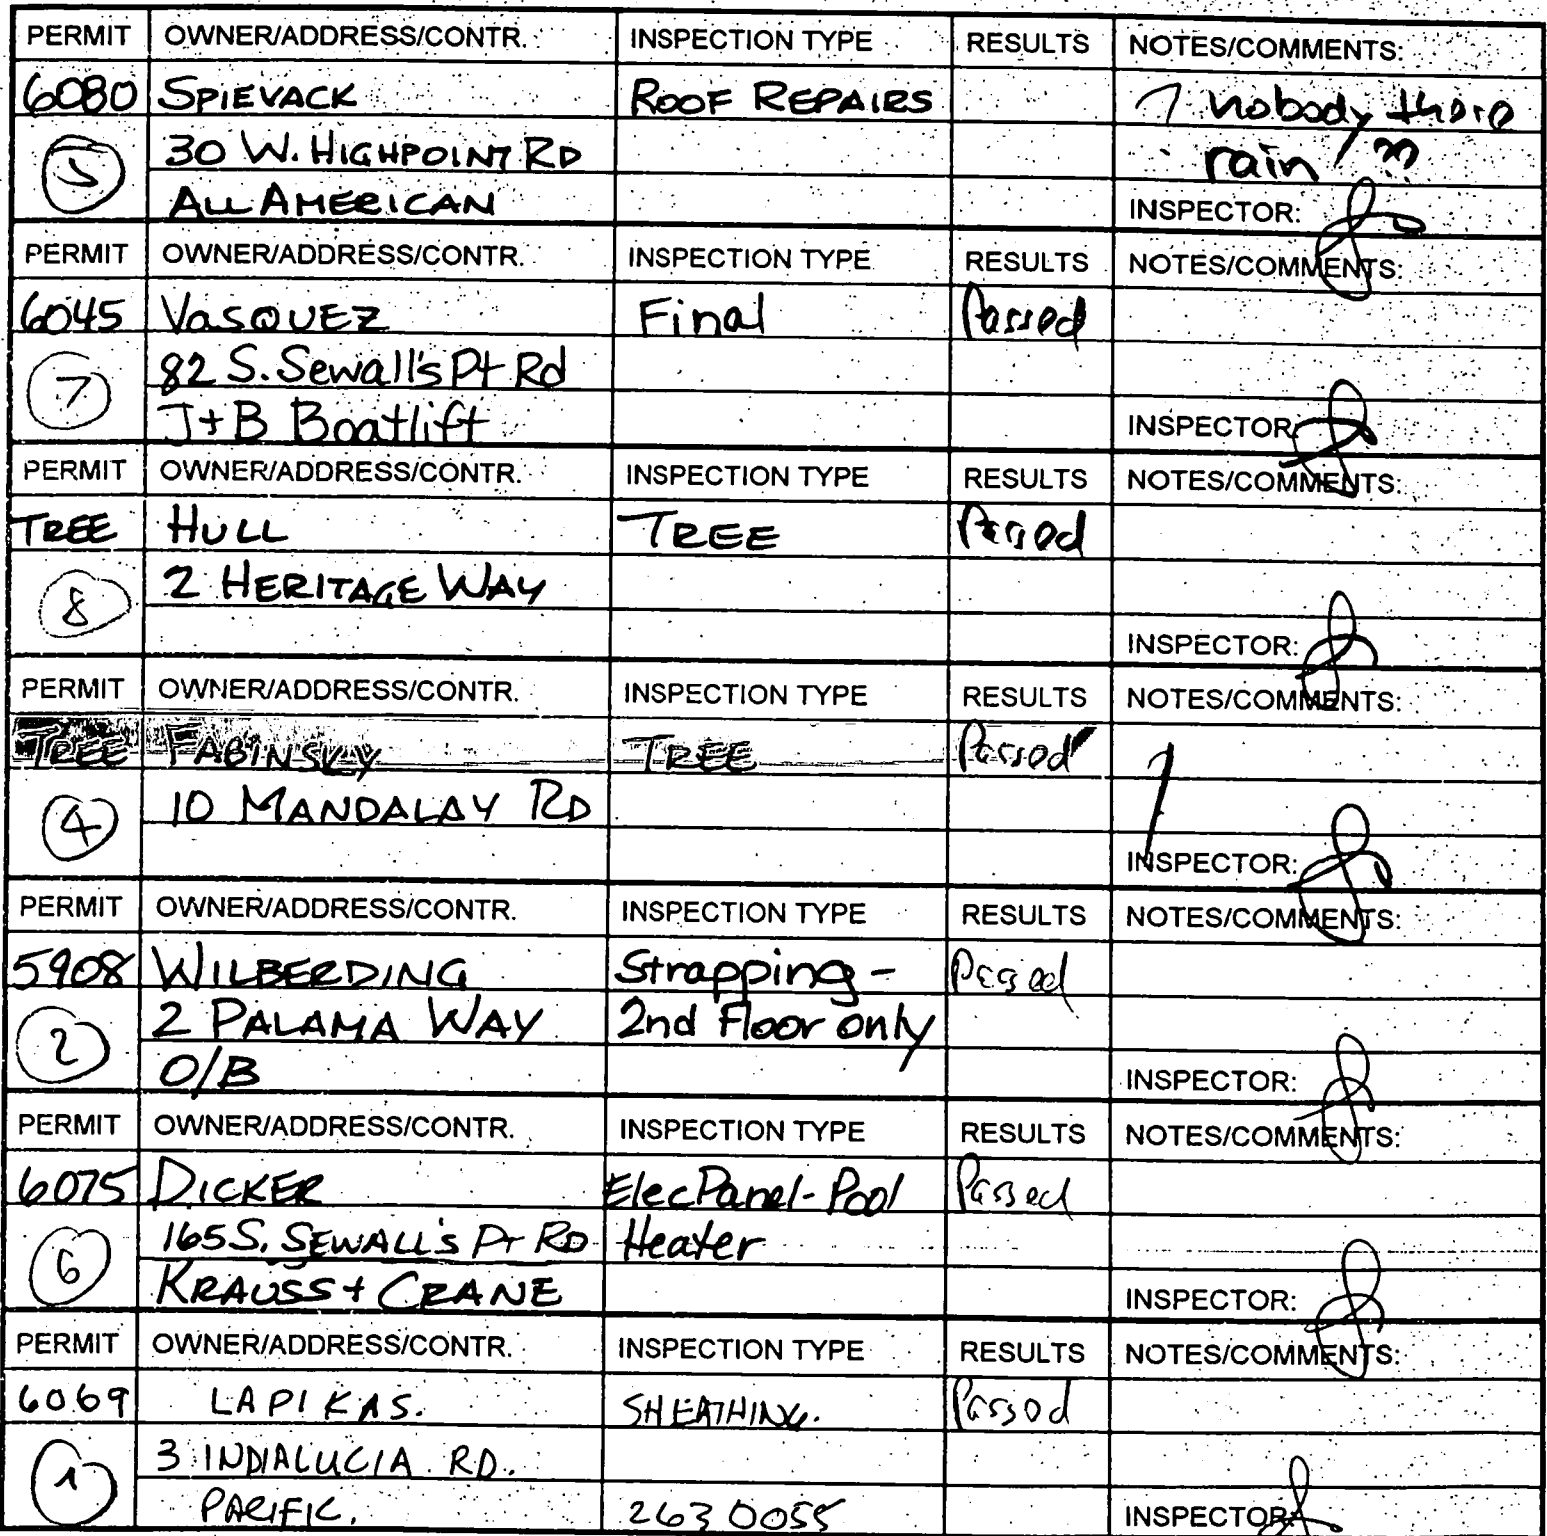 PERMIT OWNER/ADDRESS/CONTR. INSPECTION TYPE RESULTS NOTES/COMMENTS:
6080 SPIEVACK ROOF REPAIRS nobody there
5 30 W. HIGHPOINT RD rain ??
ALL AMERICAN INSPECTOR:
PERMIT OWNER/ADDRESS/CONTR. INSPECTION TYPE RESULTS NOTES/COMMENTS:
6045 VASQUEZ Final Passed
7 82 S. Sewall's Pt Rd
J+B Boatlift INSPECTOR:
PERMIT OWNER/ADDRESS/CONTR. INSPECTION TYPE RESULTS NOTES/COMMENTS:
TREE HULL TREE Passed
8 2 HERITAGE WAY
INSPECTOR:
PERMIT OWNER/ADDRESS/CONTR. INSPECTION TYPE RESULTS NOTES/COMMENTS:
TREE FABINSKY TREE Passed
4 10 MANDALAY RD
INSPECTOR:
PERMIT OWNER/ADDRESS/CONTR. INSPECTION TYPE RESULTS NOTES/COMMENTS:
5908 WILBERDING Strapping - Passed
2 2 PALAMA WAY 2nd Floor only
O/B INSPECTOR:
PERMIT OWNER/ADDRESS/CONTR. INSPECTION TYPE RESULTS NOTES/COMMENTS:
6075 DICKER Elec Panel - Pool Passed
6 165 S. SEWALL'S PT RD Heater
KRAUSS + CRANE INSPECTOR:
PERMIT OWNER/ADDRESS/CONTR. INSPECTION TYPE RESULTS NOTES/COMMENTS:
6069 LAPIKAS. SHEATHING. Passed
1 3 INDIALUCIA RD.
PACIFIC. 263 0055 INSPECTOR